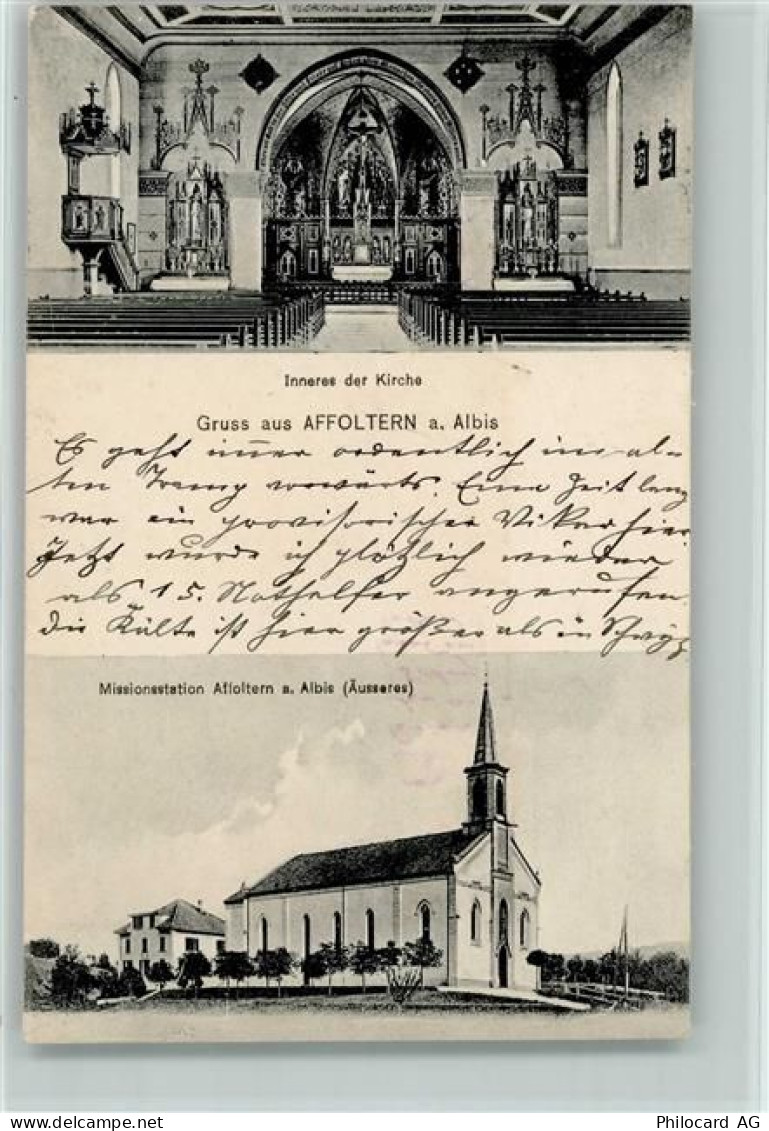 Inneres der Kirche
Gruss aus AFFOLTERN a. Albis
Es geht immer ordentlich im al-
ten Tramp vorwärts. Eine Zeit lang
war ein provisorischer Vikar hier.
Jetzt wurde ich plötzlich wieder
als 15. Nothelfer angerufen.
Die Kälte ist hier größer als in Schwyz
Missionsstation Affoltern a. Albis (Äusseres)
Philocard AG